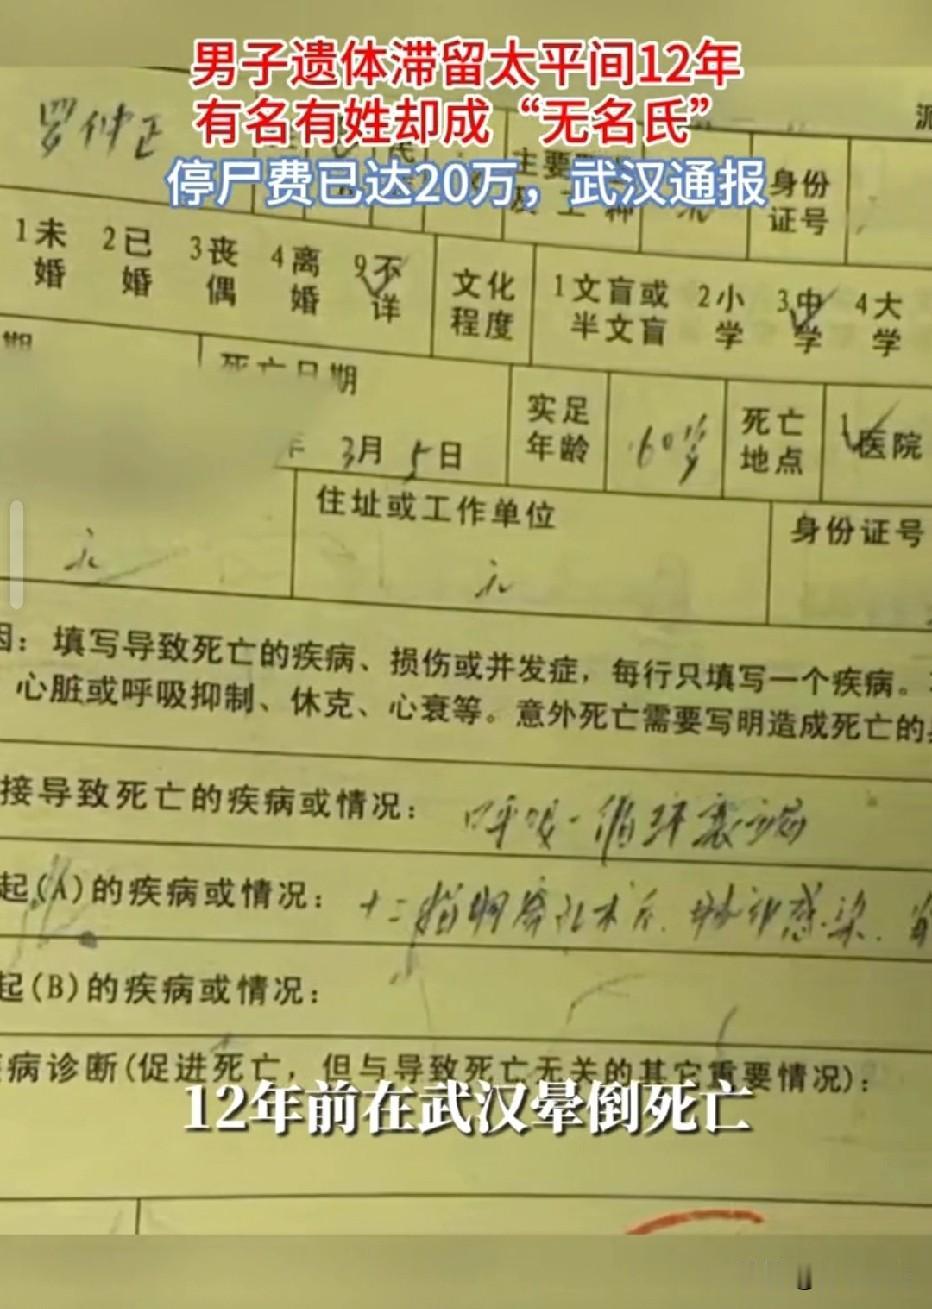 男子遗体滞留太平间12年
有名有姓却成“无名氏”
停尸费已达20万，武汉通报
罗仲正
主要
身份证号
1未婚 2已婚 3丧偶 4离婚 9不详 文化程度 1文盲或半文盲 2小学 3中学 4大学
期 死亡日期 3月5日 实足年龄 60岁 死亡地点 1医院
无 住址或工作单位 无 身份证号
因：填写导致死亡的疾病、损伤或并发症，每行只填写一个疾病。
心脏或呼吸抑制、休克、心衰等。意外死亡需要写明造成死亡的
接导致死亡的疾病或情况： 呼吸-循环衰竭
起(A)的疾病或情况： 十二指肠穿孔术后.肺部感染.
起(B)的疾病或情况：
病诊断(促进死亡，但与导致死亡无关的其它重要情况)：
12年前在武汉晕倒死亡